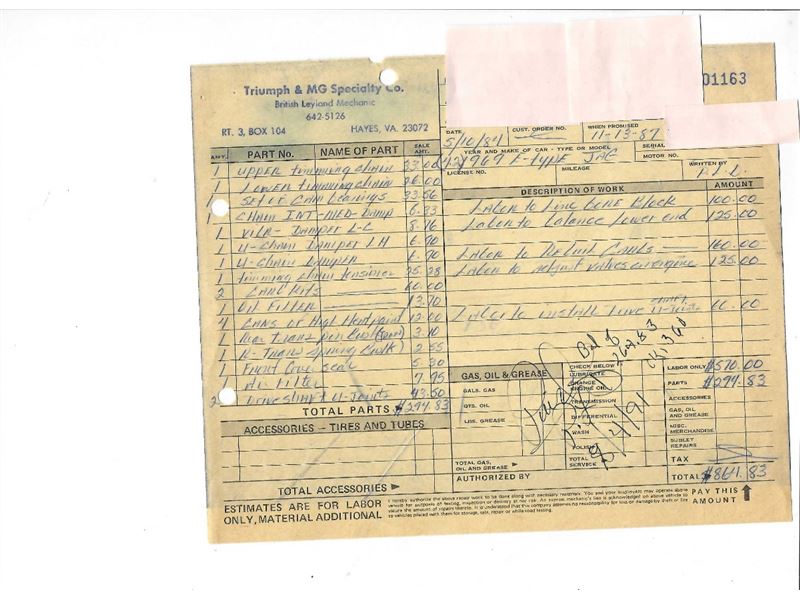 Triumph & MG Specialty Co.
British Leyland Mechanic
642-5126
RT. 3, BOX 104 HAYES, VA. 23072
01163
DATE 5/10/84 CUST. ORDER NO. WHEN PROMISED 11-13-87
YEAR AND MAKE OF CAR - TYPE OR MODEL 1969 E-TYPE JAG SERIAL
LICENSE NO. MILEAGE MOTOR NO. WRITTEN BY
AMT. PART No. NAME OF PART SALE AMT.
1 UPPER timming chain 33.00
1 LOWER timming chain 26.00
1 SET OF CAM bearings 33.56
1 CHAIN INT-MED-Damp 8.33
1 Damper L-C 8.76
1 U-Chain Damper LH 6.90
1 U-Chain Damper 6.90
1 timming chain tensioner 25.28
2 CARB Kits 60.00
1 Oil Filter 13.70
4 CANS OF High Heat paint 12.00
1 Rear Trans 3.10
1 R-Trans 2.55
1 Front Cover seal 5.30
1 Air Filter 7.95
2 Driveshaft U-Joints 43.50
TOTAL PARTS $294.83
ACCESSORIES – TIRES AND TUBES
TOTAL ACCESSORIES ►
ESTIMATES ARE FOR LABOR
ONLY, MATERIAL ADDITIONAL
DESCRIPTION OF WORK AMOUNT
Labor to Line Bore Block 100.00
Labor to balance Lower end 125.00
Labor to Rebuild CARBS 160.00
Labor to adjust valves 125.00
Labor to install Drive shaft U-Joints 60.00
GAS, OIL & GREASE
GALS. GAS
QTS. OIL
LBS. GREASE
TOTAL GAS, OIL AND GREASE ►
CHECK BELOW
LUBRICATE
CHANGE ENGINE OIL
TRANSMISSION
DIFFERENTIAL
WASH
POLISH
TOTAL SERVICE
Paid
Bal of
269.83
CK1360
8/4/91
LABOR ONLY $570.00
PARTS $294.83
ACCESSORIES
GAS, OIL AND GREASE
MISC. MERCHANDISE
SUBLET REPAIRS
TAX
TOTAL $864.83
AUTHORIZED BY
PAY THIS AMOUNT
I hereby authorize the above repair work to be done along with necessary materials. You and your employees may operate above
vehicle for purposes of testing, inspection or delivery at my risk. An express mechanic's lien is acknowledged on above vehicle to
secure the amount of repairs thereto. It is understood that this company assumes no responsibility for loss or damage by theft or fire
to vehicles placed with them for storage, sale, repair or while road testing.